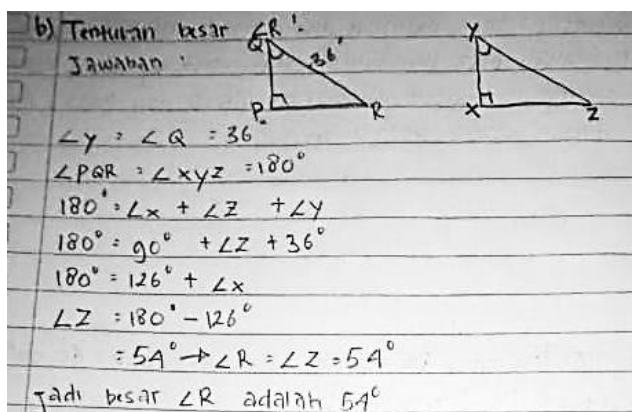 b) Tentukan besar ∠R !
Jawaban :
Q 36° P R
Y X Z
∠Y = ∠Q = 36°
∠PQR = ∠XYZ = 180°
180° = ∠X + ∠Z + ∠Y
180° = 90° + ∠Z + 36°
180° = 126° + ∠X
∠Z = 180° - 126°
= 54° → ∠R = ∠Z = 54°
Jadi besar ∠R adalah 54°